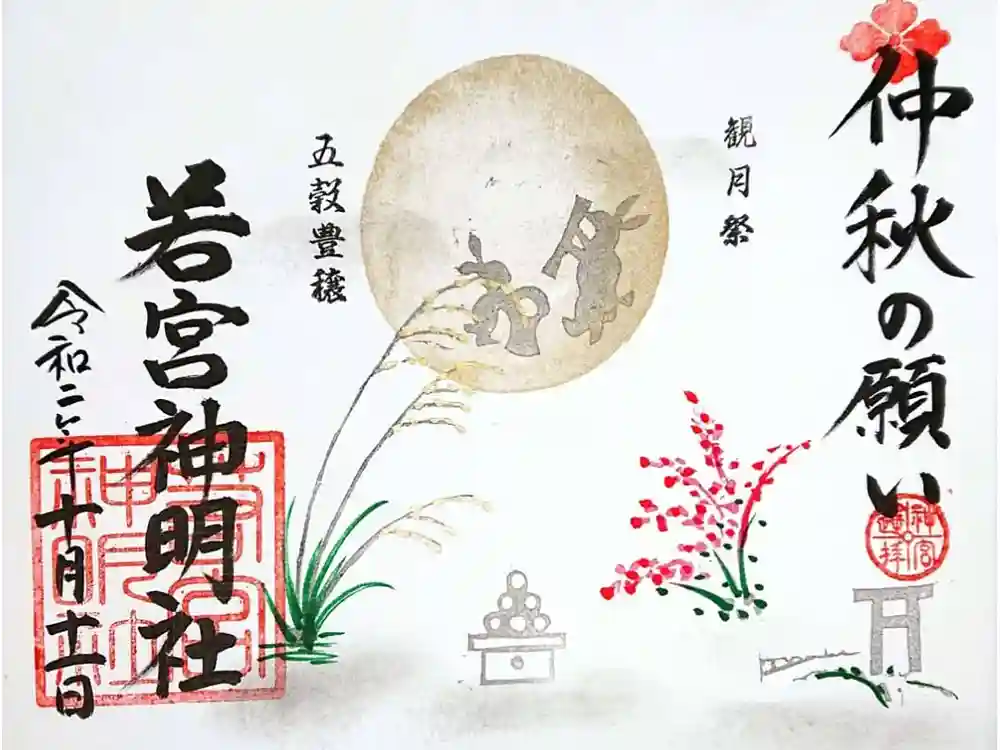 仲秋の願い
観月祭
五穀豊穣
若宮神明社
令和二年十月十一日
神宮
遥拝